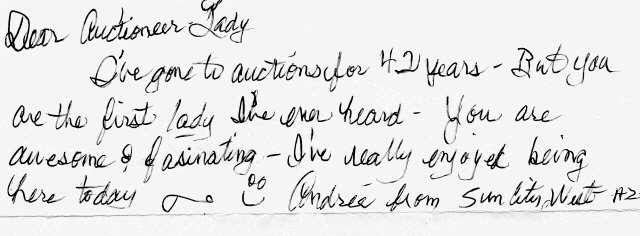 Dear Auctioneer Lady
I've gone to auctions for 42 years - But you
are the first lady I've ever heard - You are
awesome & fasinating - I've really enjoyed being
here today Andreé from Sun City West AZ